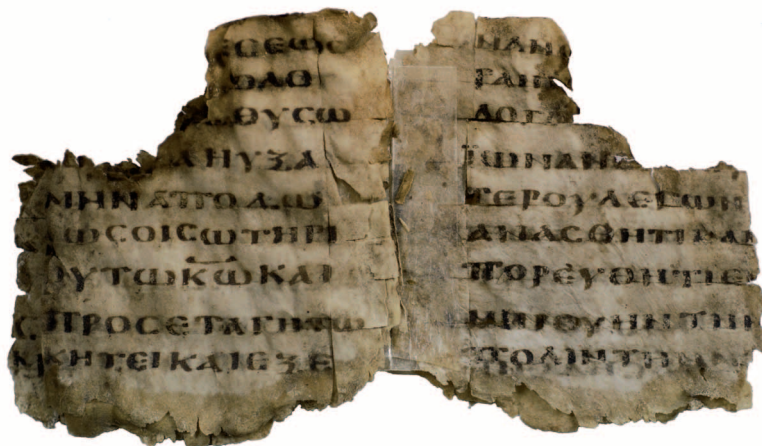 ΕϹΕΩϹ
ΟΛΟ
ΘΥϹΩ
ΗΥΞΑ
ΜΗΝΑΠΟΔΩ
ΩϹΟΙϹΩΤΗΡΙ
ΟΥΤΩΚ̅Ω̅ΚΑΙ
ΠΡΟϹΕΤΑΓΗΤΩ
ΚΗΤΕΙΚΑΙΕΞΕ
ΝΑΝ
ΡΑΝ
ΛΟΓΟ
ΪΩΝΑΝΕ
ΤΕΡΟΥΛΕΓΩΝ
ΑΝΑϹΘΗΤΙΚΑΙ
ΠΟΡΕΥΘΗΤΙΕΙ
ΤΗΝ
ΠΟΛΙΝΤΗΝΜ